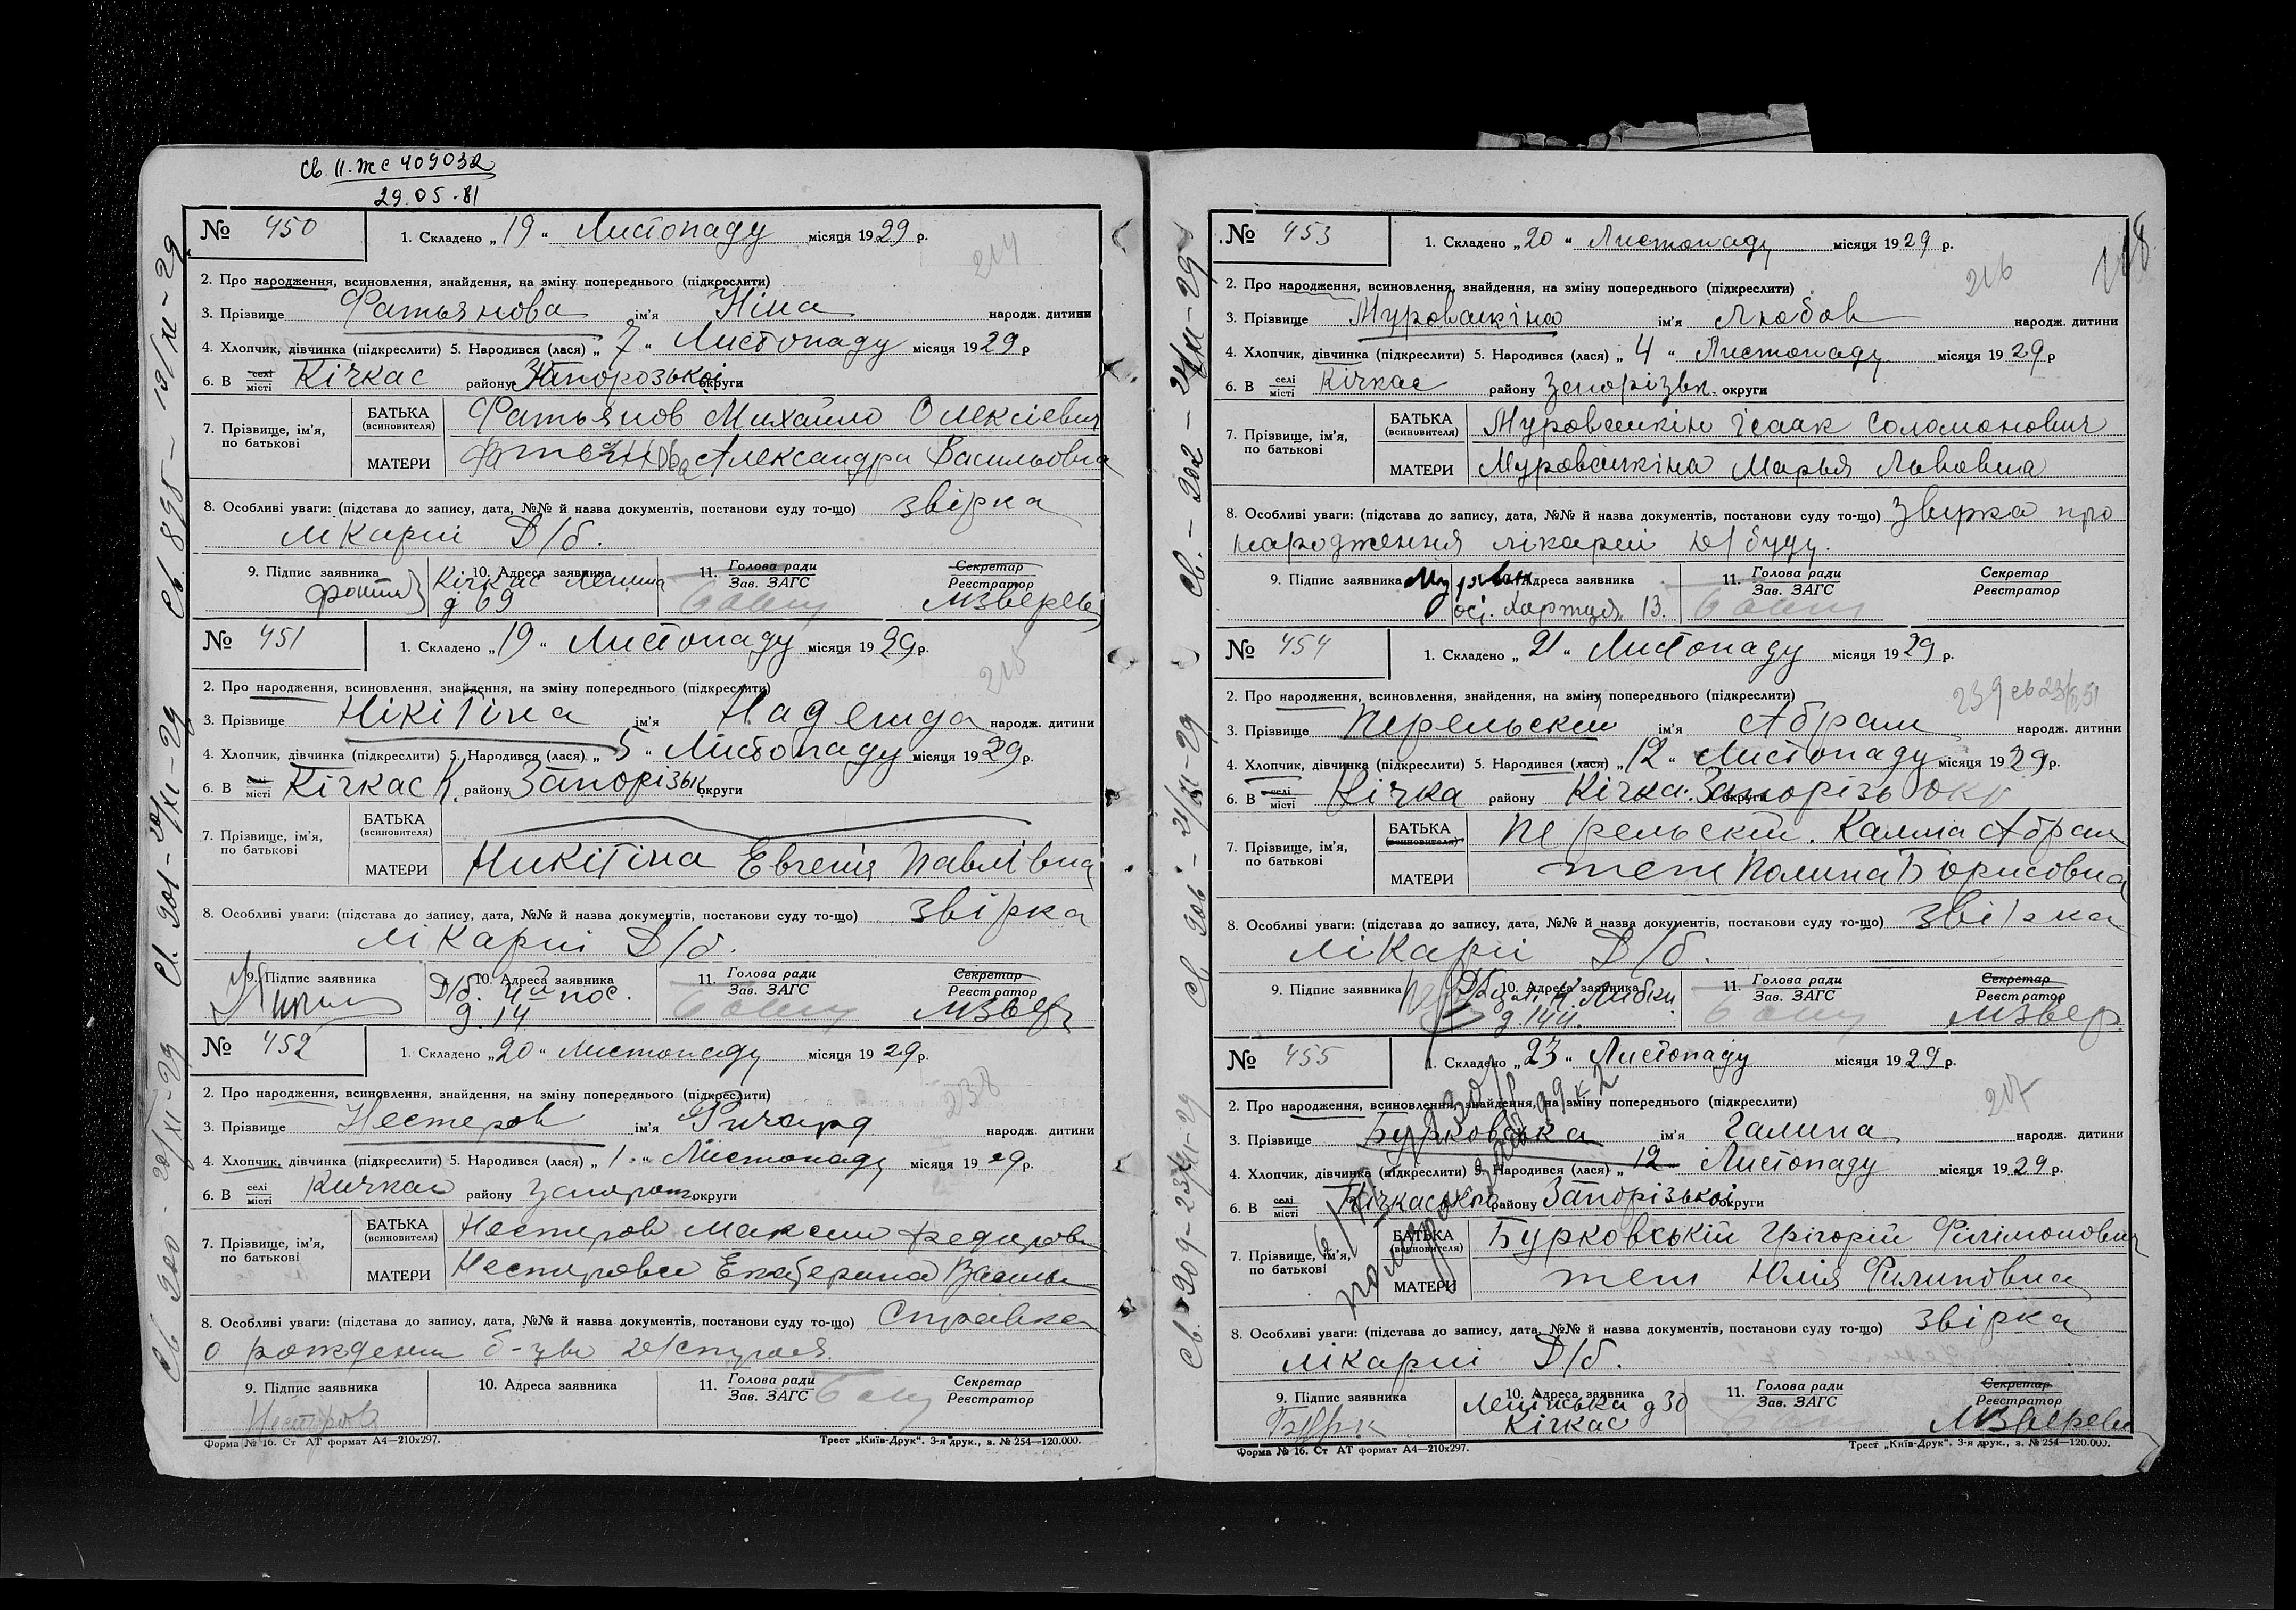 Св. II-ЖС 409032
29.05.81
№ 450
1. Складено „19“ Листопаду місяця 1929 р.
214
2. Про народження, всиновлення, знайдення, на зміну попереднього (підкреслити)
3. Прізвище Фатьянова ім'я Ніна народж. дитини
4. Хлопчик, дівчинка (підкреслити) 5. Народився (лася) „7“ Листопаду місяця 1929 р
6. В селі місті Кічкас району Запорозької округи
7. Прізвище, ім'я, по батькові
БАТЬКА (всиновителя) Фатьянов Михайло Олексіевич
МАТЕРИ Александра Васильовна
8. Особливі уваги: (підстава до запису, дата, №№ й назва документів, постанови суду то-що) звірка
лікарні Д/б.
9. Підпис заявника
10. Адреса заявника Кічкас Леніна
д 69
11. Голова ради Зав. ЗАГС
Секретар Реєстратор МЗверев
№ 451
1. Складено „19“ Листопаду місяця 1929 р.
215
2. Про народження, всиновлення, знайдення, на зміну попереднього (підкреслити)
3. Прізвище Нікітіна ім'я Надежда народж. дитини
4. Хлопчик, дівчинка (підкреслити) 5. Народився (лася) „5“ Листопаду місяця 1929 р.
6. В селі місті Кічкас К. району Запорізьк. округи
7. Прізвище, ім'я, по батькові
БАТЬКА (всиновителя)
МАТЕРИ Никітіна Евгенія Павлівна
8. Особливі уваги: (підстава до запису, дата, №№ й назва документів, постакови суду то-що) звірка
лікарні Д/б.
9. Підпис заявника
10. Адреса заявника Д/б. 4й пос.
д. 14
11. Голова ради Зав. ЗАГС
Секретар Реєстратор МЗвер
№ 452
1. Складено „20“ Листопаду місяця 1929 р.
238
2. Про народження, всиновлення, знайдення, на зміну попереднього (підкреслити)
3. Прізвище Нестеров ім'я Ричард народж. дитини
4. Хлопчик, дівчинка (підкреслити) 5. Народився (лася) „1“ Листопаду місяця 1929 р.
6. В селі місті Кичкас району округи
7. Прізвище, ім'я, по батькові
БАТЬКА (всиновителя) Нестеров Максим Федоров
МАТЕРИ Нестерова Екатерина
8. Особливі уваги: (підстава до запису, дата, №№ й назва документів, постанови суду то-що) Справка
о рождении
9. Підпис заявника Нестеров
10. Адреса заявника
11. Голова ради Зав. ЗАГС
Секретар Реєстратор
Форма № 16. Ст АТ формат А4—210х297.
Трест „Київ-Друк“. 3-я друк., з. № 254—120.000.
Св 900 - 20/XI-29 Св. 901-20/XI-29 Св. 898 - 19/XI-29
№ 453
1. Складено „20“ Листопаду місяця 1929 р.
216
2. Про народження, всиновлення, знайдення, на зміну попереднього (підкреслити)
3. Прізвище Муровашкіна ім'я Любов народж. дитини
4. Хлопчик, дівчинка (підкреслити) 5. Народився (лася) „4“ Листопаду місяця 1929 р
6. В селі місті Кічкас району Запорізьк. округи
7. Прізвище, ім'я, по батькові
БАТЬКА (всиновителя) Муровашкін Ісаак Соломонович
МАТЕРИ Муровашкіна Марья Львовна
8. Особливі уваги: (підстава до запису, дата, №№ й назва документів, постанови суду то-що) Звірка про
народження лікарні Д/буду.
9. Підпис заявника
10. Адреса заявника
13.
11. Голова ради Зав. ЗАГС
Секретар Реєстратор
№ 454
1. Складено „21“ Листопаду місяця 1929 р.
239
2. Про народження, всиновлення, знайдення, на зміну попереднього (підкреслити)
3. Прізвище Перельский ім'я Абрам народж. дитини
4. Хлопчик, дівчинка (підкреслити) 5. Народився (лася) „12“ Листопаду місяця 1929 р.
6. В селі місті Кічка району Кічка. Запорізь окр
7. Прізвище, ім'я, по батькові
БАТЬКА (всиновителя) Перельскій Абрам
МАТЕРИ теж Полина Борисовна
8. Особливі уваги: (підстава до запису, дата, №№ й назва документів, постакови суду то-що) звірка
лікарні Д/б.
9. Підпис заявника
10. Адреса заявника
д. 144.
11. Голова ради Зав. ЗАГС
Секретар Реєстратор МЗвер
№ 455
1. Складено „23“ Листопаду місяця 1929 р.
217
2. Про народження, всиновлення, знайдення, на зміну попереднього (підкреслити)
3. Прізвище Бурковська ім'я Галина народж. дитини
4. Хлопчик, дівчинка (підкреслити) 5. Народився (лася) „12“ Листопаду місяця 1929 р.
6. В селі місті району Запорізької округи
7. Прізвище, ім'я, по батькові
БАТЬКА (всиновителя) Бурковській Грігорій Філімонович
МАТЕРИ теж Юлія Филиповна
8. Особливі уваги: (підстава до запису, дата, №№ й назва документів, постанови суду то-що) звірка
лікарні Д/б.
9. Підпис заявника Бурк
10. Адреса заявника Ленінська д 30
Кічкас
11. Голова ради Зав. ЗАГС
Секретар Реєстратор МЗверев
Форма № 16. Ст АТ формат А4—210х297.
Трест „Київ-Друк“. 3-я друк., з. № 254—120.000.